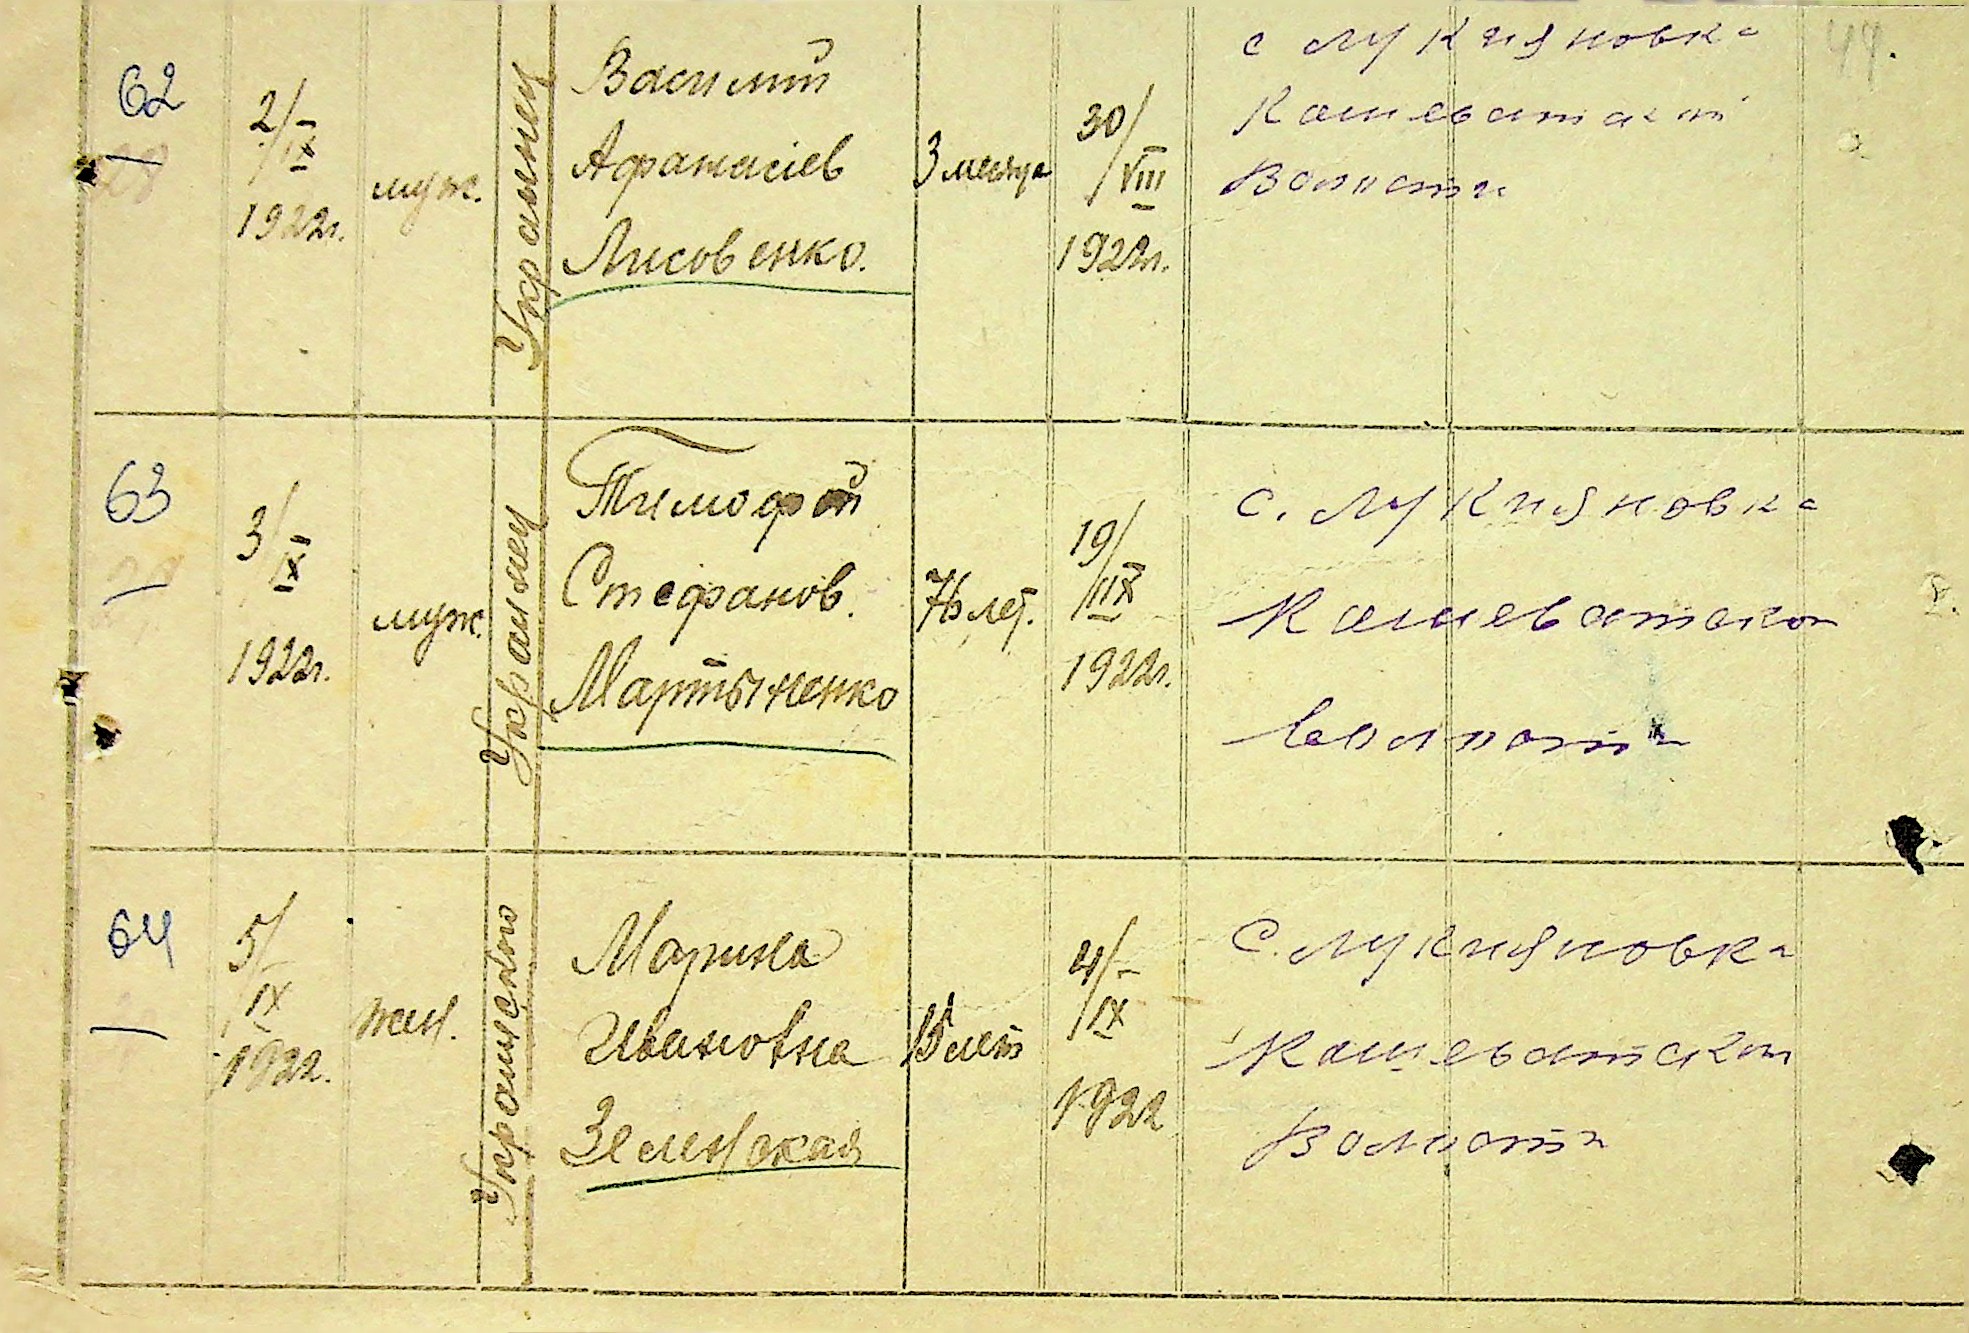 62
2/IX
1922г.
муж.
Украинец
Василий
Афанасіев
Лисовенко.
3 месяца
30/VIII
1922г.
с Лукияновка
Кошеватской
Волости
44.
63
3/IX
1922г.
муж.
Украинец
Тимофей
Стефанов.
Мартыненко
76 лет.
19/IIX
1922г.
с. Лукияновка
Кошеватской
волости
64
5/IX
1922.
жен.
Марина
Ивановна
Зеленская
15 лет
4/IX
1922
С. Лукияновка
Кошеватской
Волости